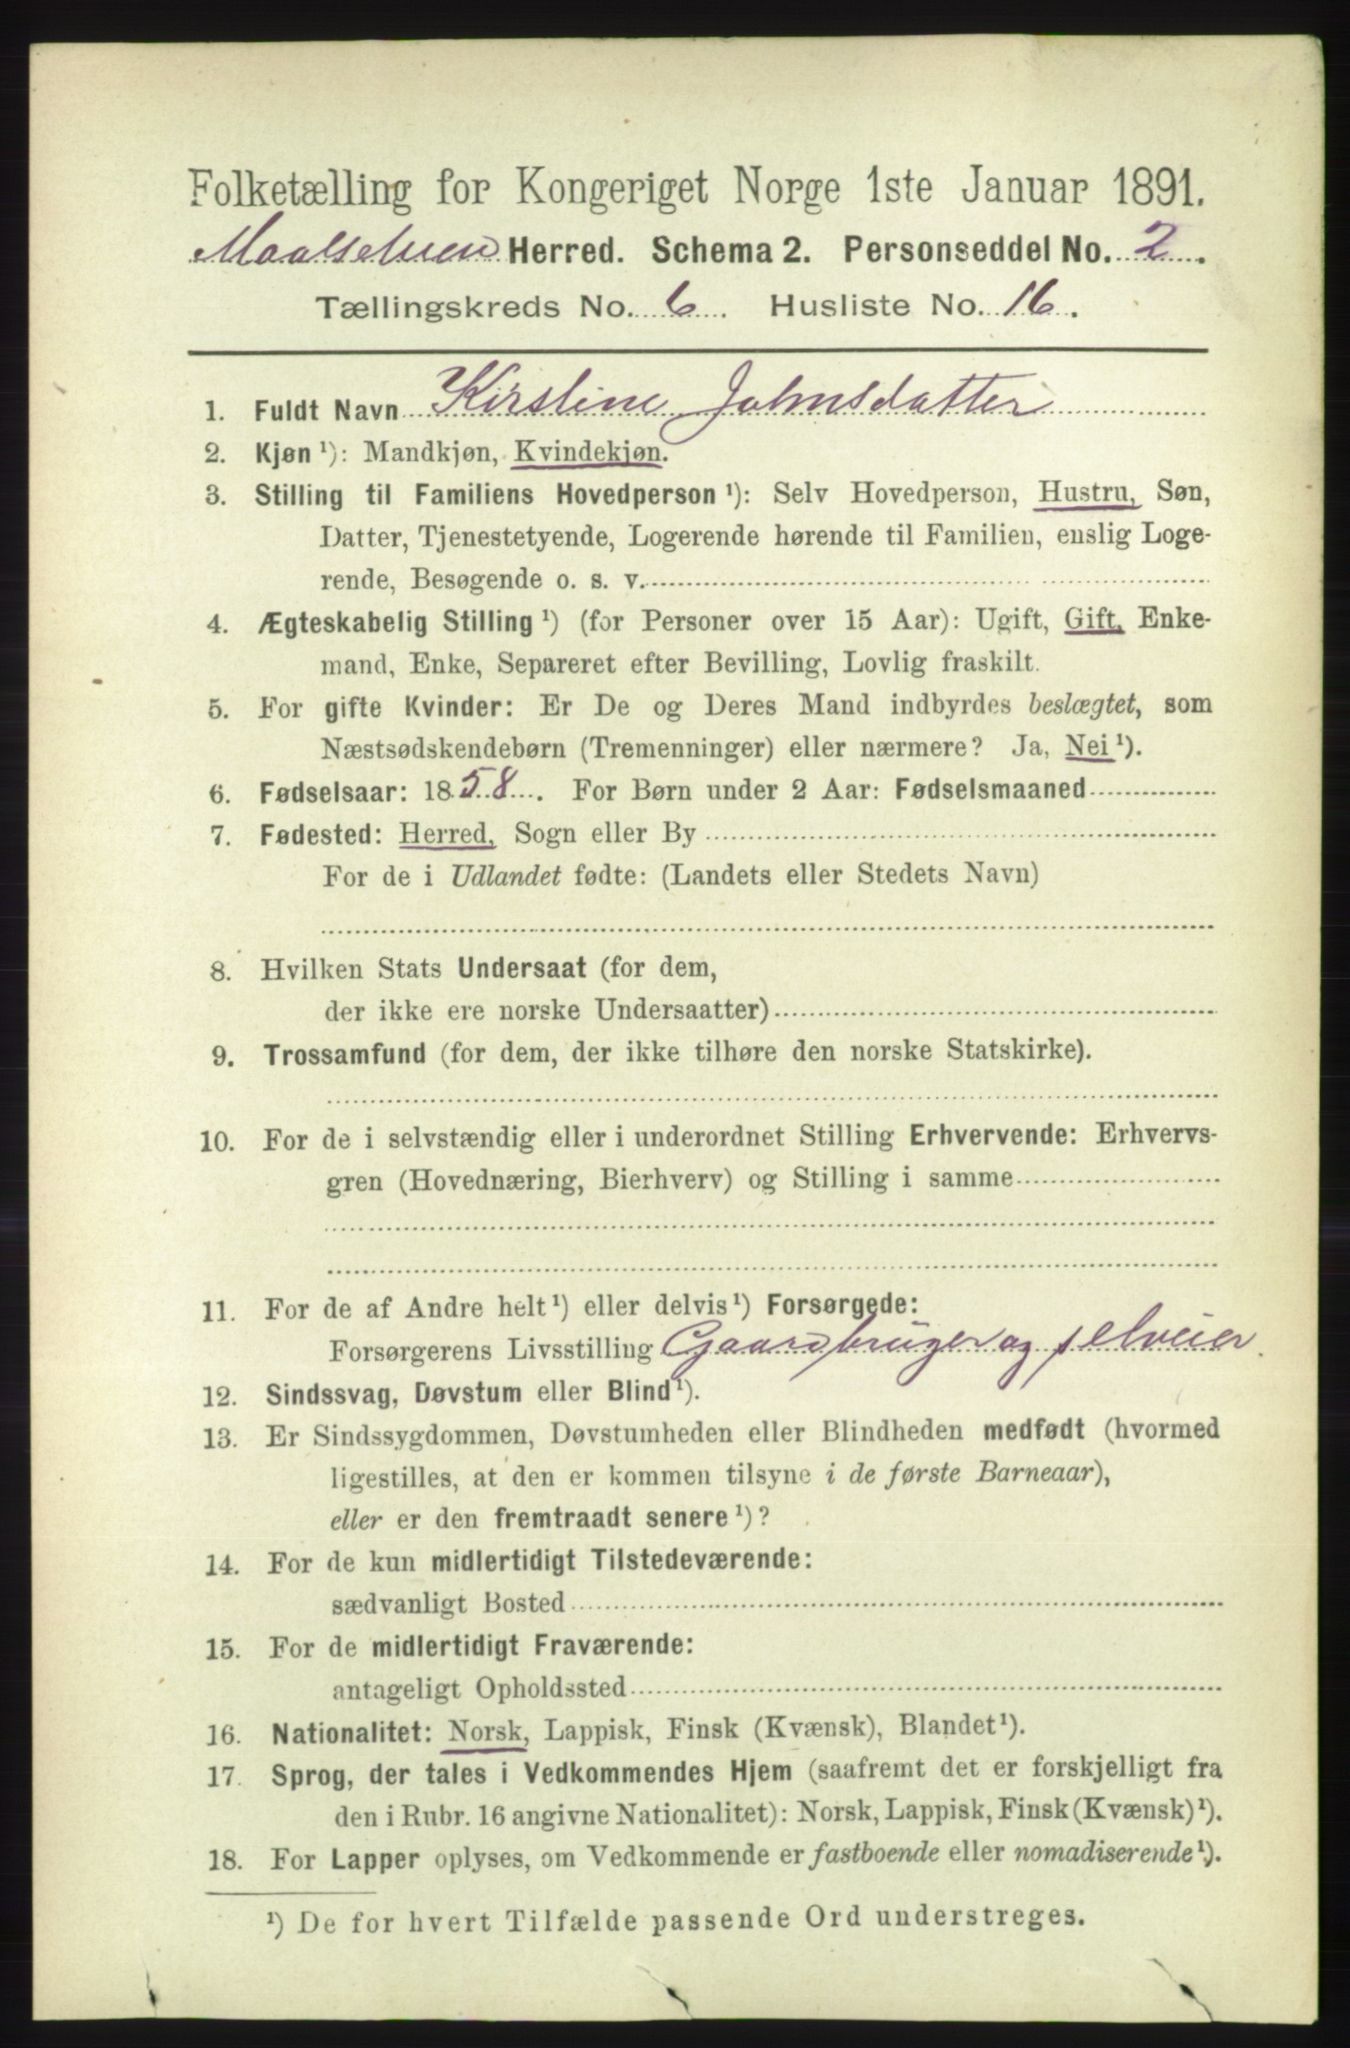 Folketælling for Kongeriget Norge 1ste Januar 1891.
Maalselven Herred. Schema 2. Personseddel No. 2.
Tællingskreds No. 6. Husliste No. 16.
1. Fuldt Navn Kirstine Johnsdatter
2. Kjøn ¹): Mandkjøn, Kvindekjøn.
3. Stilling til Familiens Hovedperson ¹): Selv Hovedperson, Hustru, Søn,
Datter, Tjenestetyende, Logerende hørende til Familien, enslig Loge-
rende, Besøgende o. s. v.
4. Ægteskabelig Stilling ¹) (for Personer over 15 Aar): Ugift, Gift, Enke-
mand, Enke, Separeret efter Bevilling, Lovlig fraskilt.
5. For gifte Kvinder: Er De og Deres Mand indbyrdes beslægtet, som
Næstsødskendebørn (Tremenninger) eller nærmere? Ja, Nei ¹).
6. Fødselsaar: 1858. For Børn under 2 Aar: Fødselsmaaned
7. Fødested: Herred, Sogn eller By
For de i Udlandet fødte: (Landets eller Stedets Navn)
8. Hvilken Stats Undersaat (for dem,
der ikke ere norske Undersaatter)
9. Trossamfund (for dem, der ikke tilhøre den norske Statskirke).
10. For de i selvstændig eller i underordnet Stilling Erhvervende: Erhvervs-
gren (Hovednæring, Bierhverv) og Stilling i samme
11. For de af Andre helt ¹) eller delvis ¹) Forsørgede:
Forsørgerens Livsstilling Gaardbruger og selveier
12. Sindssvag, Døvstum eller Blind ¹).
13. Er Sindssygdommen, Døvstumheden eller Blindheden medfødt (hvormed
ligestilles, at den er kommen tilsyne i de første Barneaar),
eller er den fremtraadt senere ¹)?
14. For de kun midlertidigt Tilstedeværende:
sædvanligt Bosted
15. For de midlertidigt Fraværende:
antageligt Opholdssted
16. Nationalitet: Norsk, Lappisk, Finsk (Kvænsk), Blandet ¹).
17. Sprog, der tales i Vedkommendes Hjem (saafremt det er forskjelligt fra
den i Rubr. 16 angivne Nationalitet): Norsk, Lappisk, Finsk (Kvænsk) ¹).
18. For Lapper oplyses, om Vedkommende er fastboende eller nomadiserende ¹).
¹) De for hvert Tilfælde passende Ord understreges.